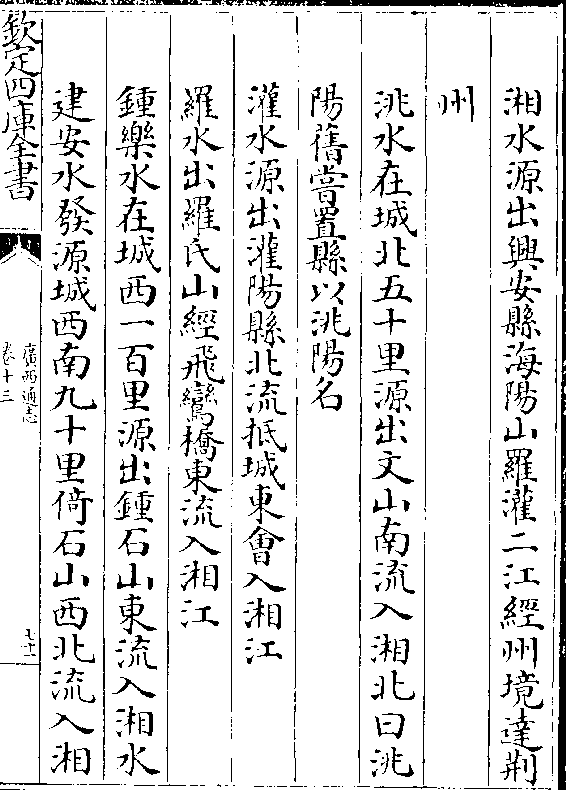 湘水源出興安縣海陽山羅灌二江經州境達荆
州
洮水在城北五十里源出文山南流入湘北曰洮
陽舊嘗置縣以洮陽名
灌水源出灌陽縣北流抵城東會入湘江
羅水出羅氏山經飛鸞橋東流入湘江
鍾樂水在城西一百里源出鍾石山東流入湘水
建安水發源城西南九十里倚石山西北流入湘
欽定四庫全書
廣西通志
卷十三